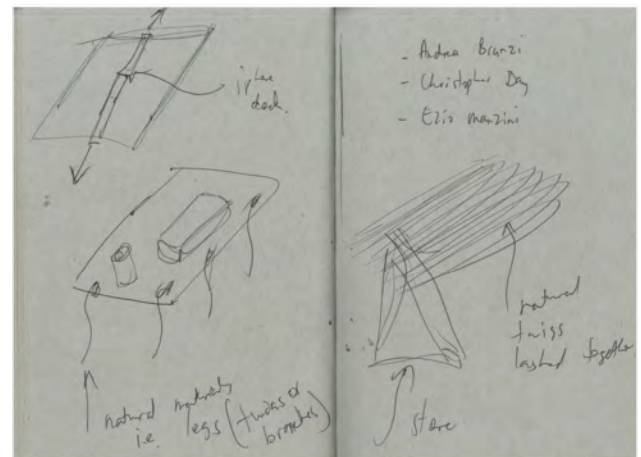 dock.
natural materials
i.e. legs (twigs or
branches)
- Andrea Branzi
- Christopher Day
- Ezio Manzini
natural
twigs
lashed together